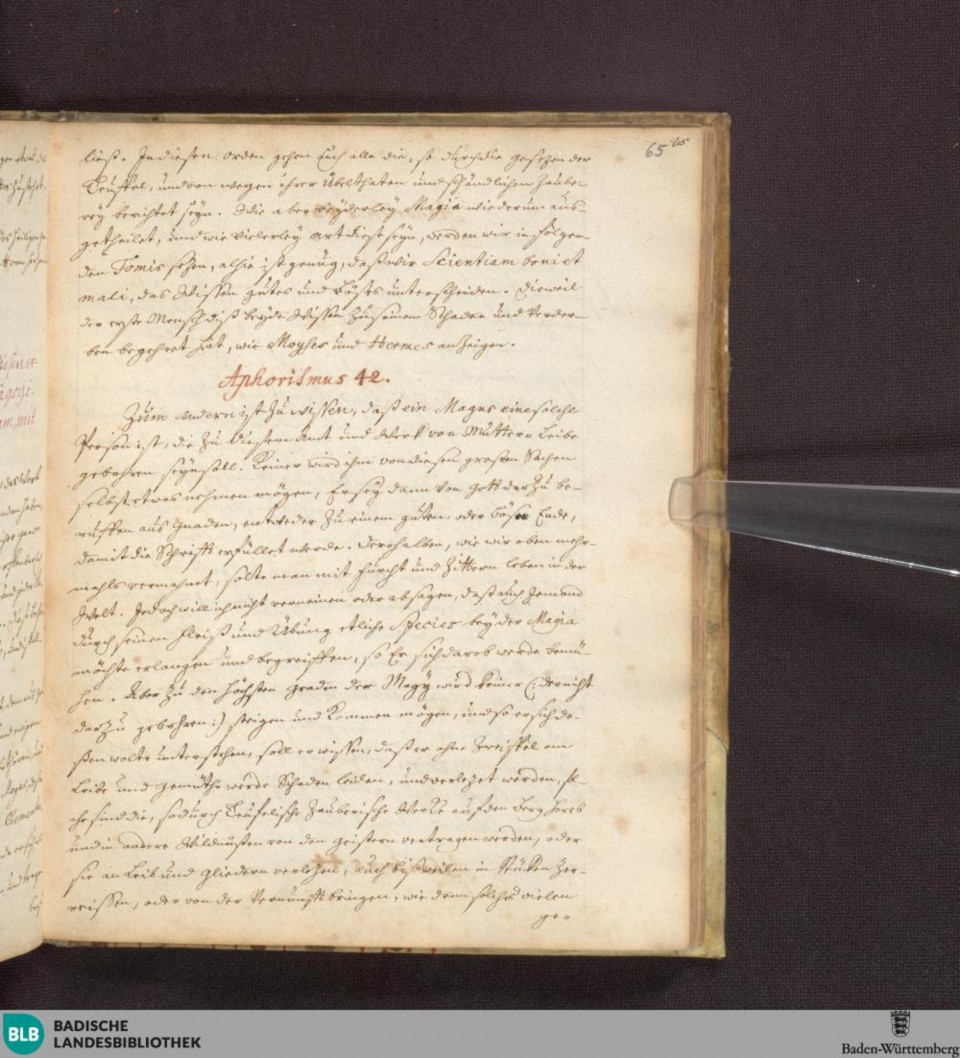 65
list. In diesen Orden gehen auch alle die, so durch die gesezen der
Teuffel, und von wegen ihrer Übelthaten und schändlichen Zaube-
rey berichtet seyn. Wie aber beyderley Magia wiederum aus-
getheilet, und wie vielerley art diese seyn, werden wir in folgen-
den Tomis sehen, alhie ist genug, daß wir Scientiam boni et
mali, das Wissen gutes und böses unterscheiden. Dieweil
der erste Mensch diß beyde Wissen zu seinem Schaden und Verder-
ben begehret hat, wie Moyses und Hermes anzeigen.
Aphorismus 42.
Zum andern ist zu wissen, daß ein Magus eine solche
Person ist, die zu diesem Amt und Werk von Mutter Leibe
gebohren seyn soll. Keiner wird ihm von diesen grosten Sachen
selbst etwas nehmen mögen, Er sey dann von Gott darzu be-
ruffen aus Gnaden, entweder zu einem guten, oder bösen Ende,
damit die Schrifft erfüllet werde. Derohalben, wie wir oben mehr-
mahls vermahnet, solte man mit furcht und Zittern leben in der
Welt. Jedoch will ich nicht verneinen oder absagen, daß auch Jemand
durch seinen fleiß und Übung etliche Species beyder Magia
möchte erlangen und begreiffen, so Er sich darob werde bemü-
hen. Aber zu den höchsten graden der Magy wird keiner (: der nicht
darzu gebohren :) steigen und kommen mögen, und so er sich de-
ßen wolte unterstehen, soll er wissen, daß er ohne Zweiffel am
Leibe und gemüthe werde Schaden leiden, und verlezet werden, sol-
che sind die, so durch Teufelische Zauberische Werke auf den Berg Horeb
und in andere Wildnüßen von den geistern vertragen werden, oder
sie an Leib und gliedern verlezen, auch bißweilen in stücken zer-
reissen, oder von der Vernunfft bringen, wie denn solches vielen
ge-
BLB
BADISCHE
LANDESBIBLIOTHEK
Baden-Württemberg